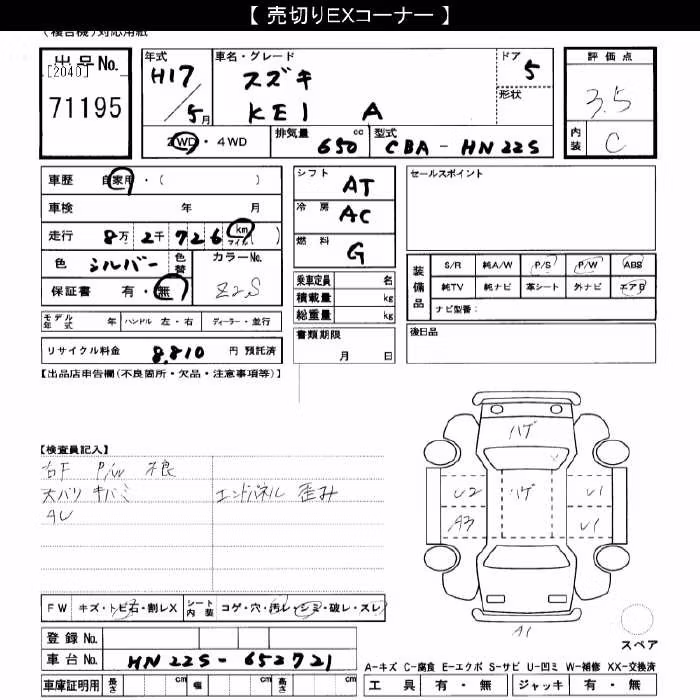 【 売切りEXコーナー 】
(複合機)対応用紙
出品No.
[2040]
71195
年式
H17
/
5月
車名・グレード
スズキ
KEI A
ドア
5
形状
評価点
3.5
内装
C
2WD ・ 4WD
排気量
650 cc
型式
CBA - HN22S
車歴 自家用・( )
車検 年 月
走行 8万 2千 726 km マイル ( )
色 シルバー
色替
カラーNo.
Z2S
保証書 有・無
モデル年式 年
ハンドル 左・右
ディーラー・並行
リサイクル料金 8,810 円 預託済
シフト
AT
冷房
AC
燃料
G
乗車定員 名
積載量 kg
総重量 kg
書類期限
月 日
セールスポイント
装備品
S/R 純A/W P/S P/W ABS
純TV 純ナビ 革シート 外ナビ エアB
ナビ型番:
後日品
【出品店申告欄(不良箇所・欠品・注意事項等)】
【検査員記入】
右F P/W 不良
大バツ キバミ
エンドパネル 歪み
AU
ハゲ
ハゲ
U2
A3
U1
U1
A1
スペア
FW キズ・トビ石・割レX
シート内装 コゲ・穴・汚レ・シミ・破レ・スレ
登録 No.
車台 No. HN22S-652721
車庫証明用 長さ cm 幅 cm 高さ cm
A-キズ C-腐食 E-エクボ S-サビ U-凹ミ W-補修 XX-交換済
工具 有・無 ジャッキ 有・無